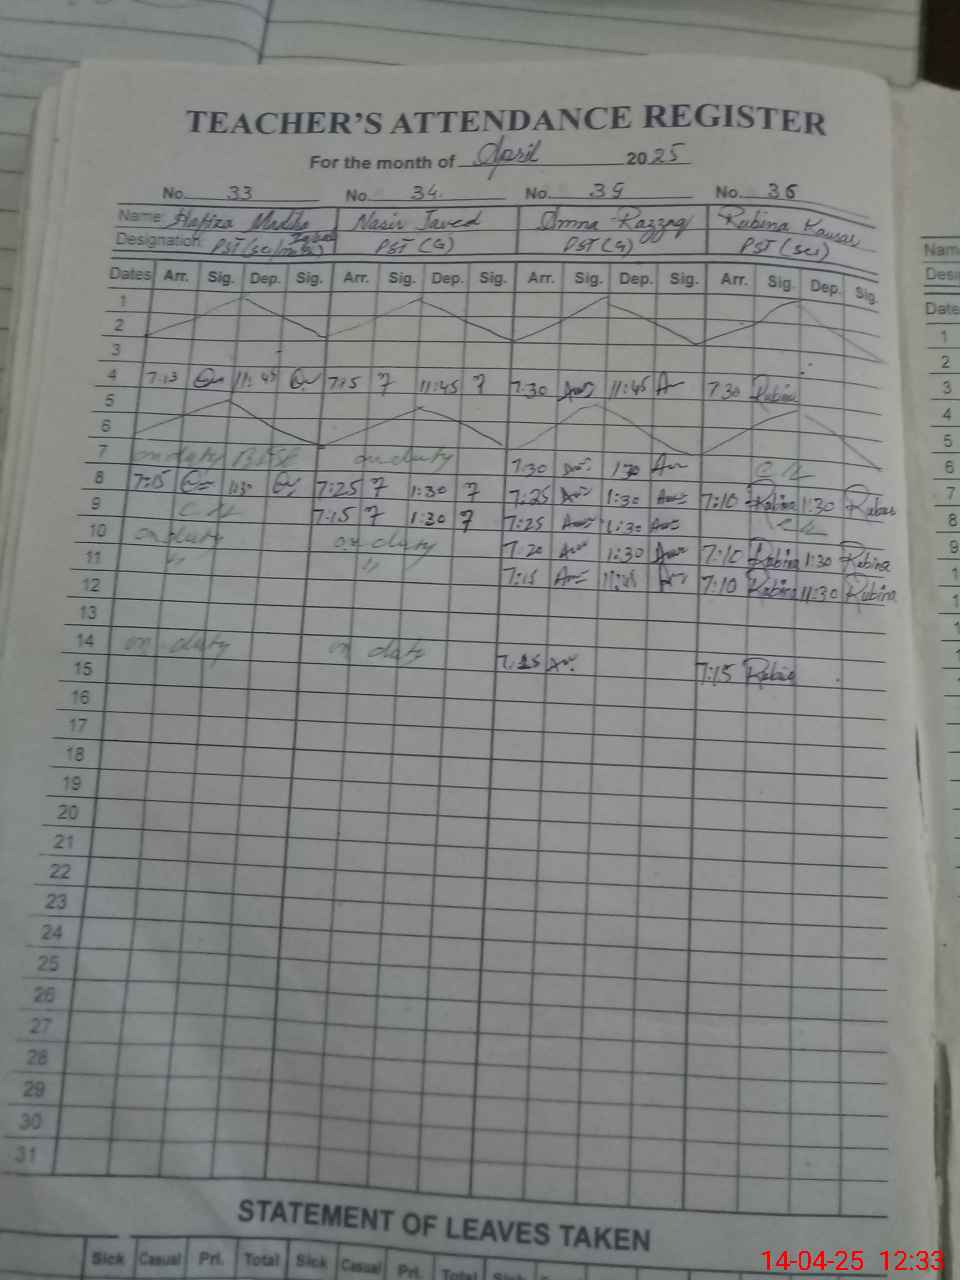 TEACHER'S ATTENDANCE REGISTER
For the month of April 2025
No. 33 No. 34. No. 35 No. 36
Name: Hafiza Nasir Javed Amna Razzaq Rubina Kausar
Designation: PST (sci/math) PST (G) PST (G) PST (sci)
Dates Arr. Sig. Dep. Sig. Arr. Sig. Dep. Sig. Arr. Sig. Dep. Sig. Arr. Sig. Dep. Sig.
1
2
3
4 7:13 11:45 7:15 7 11:45 7 7:30 11:45 7:30 Rubina
5
6
7 on duty on duty 7:30 1:30
8 7:15 1:30 7:25 7 1:30 7 7:25 1:30 7:10 Rubina 1:30 Rubina
9 7:15 7 1:30 7 7:25 1:30
10 on duty on duty 7:20 1:30 7:10 Rubina 1:30 Rubina
11 " " 7:15 11:45 7:10 Rubina 11:30 Rubina
12
13
14 on duty on duty 7:25 7:15 Rubina
15
16
17
18
19
20
21
22
23
24
25
26
27
28
29
30
31
STATEMENT OF LEAVES TAKEN
Sick Casual Pri. Total Sick Casual Pri. Total Sick
Name
Desi
Date
1
2
3
4
5
6
7
8
9
14-04-25 12:33